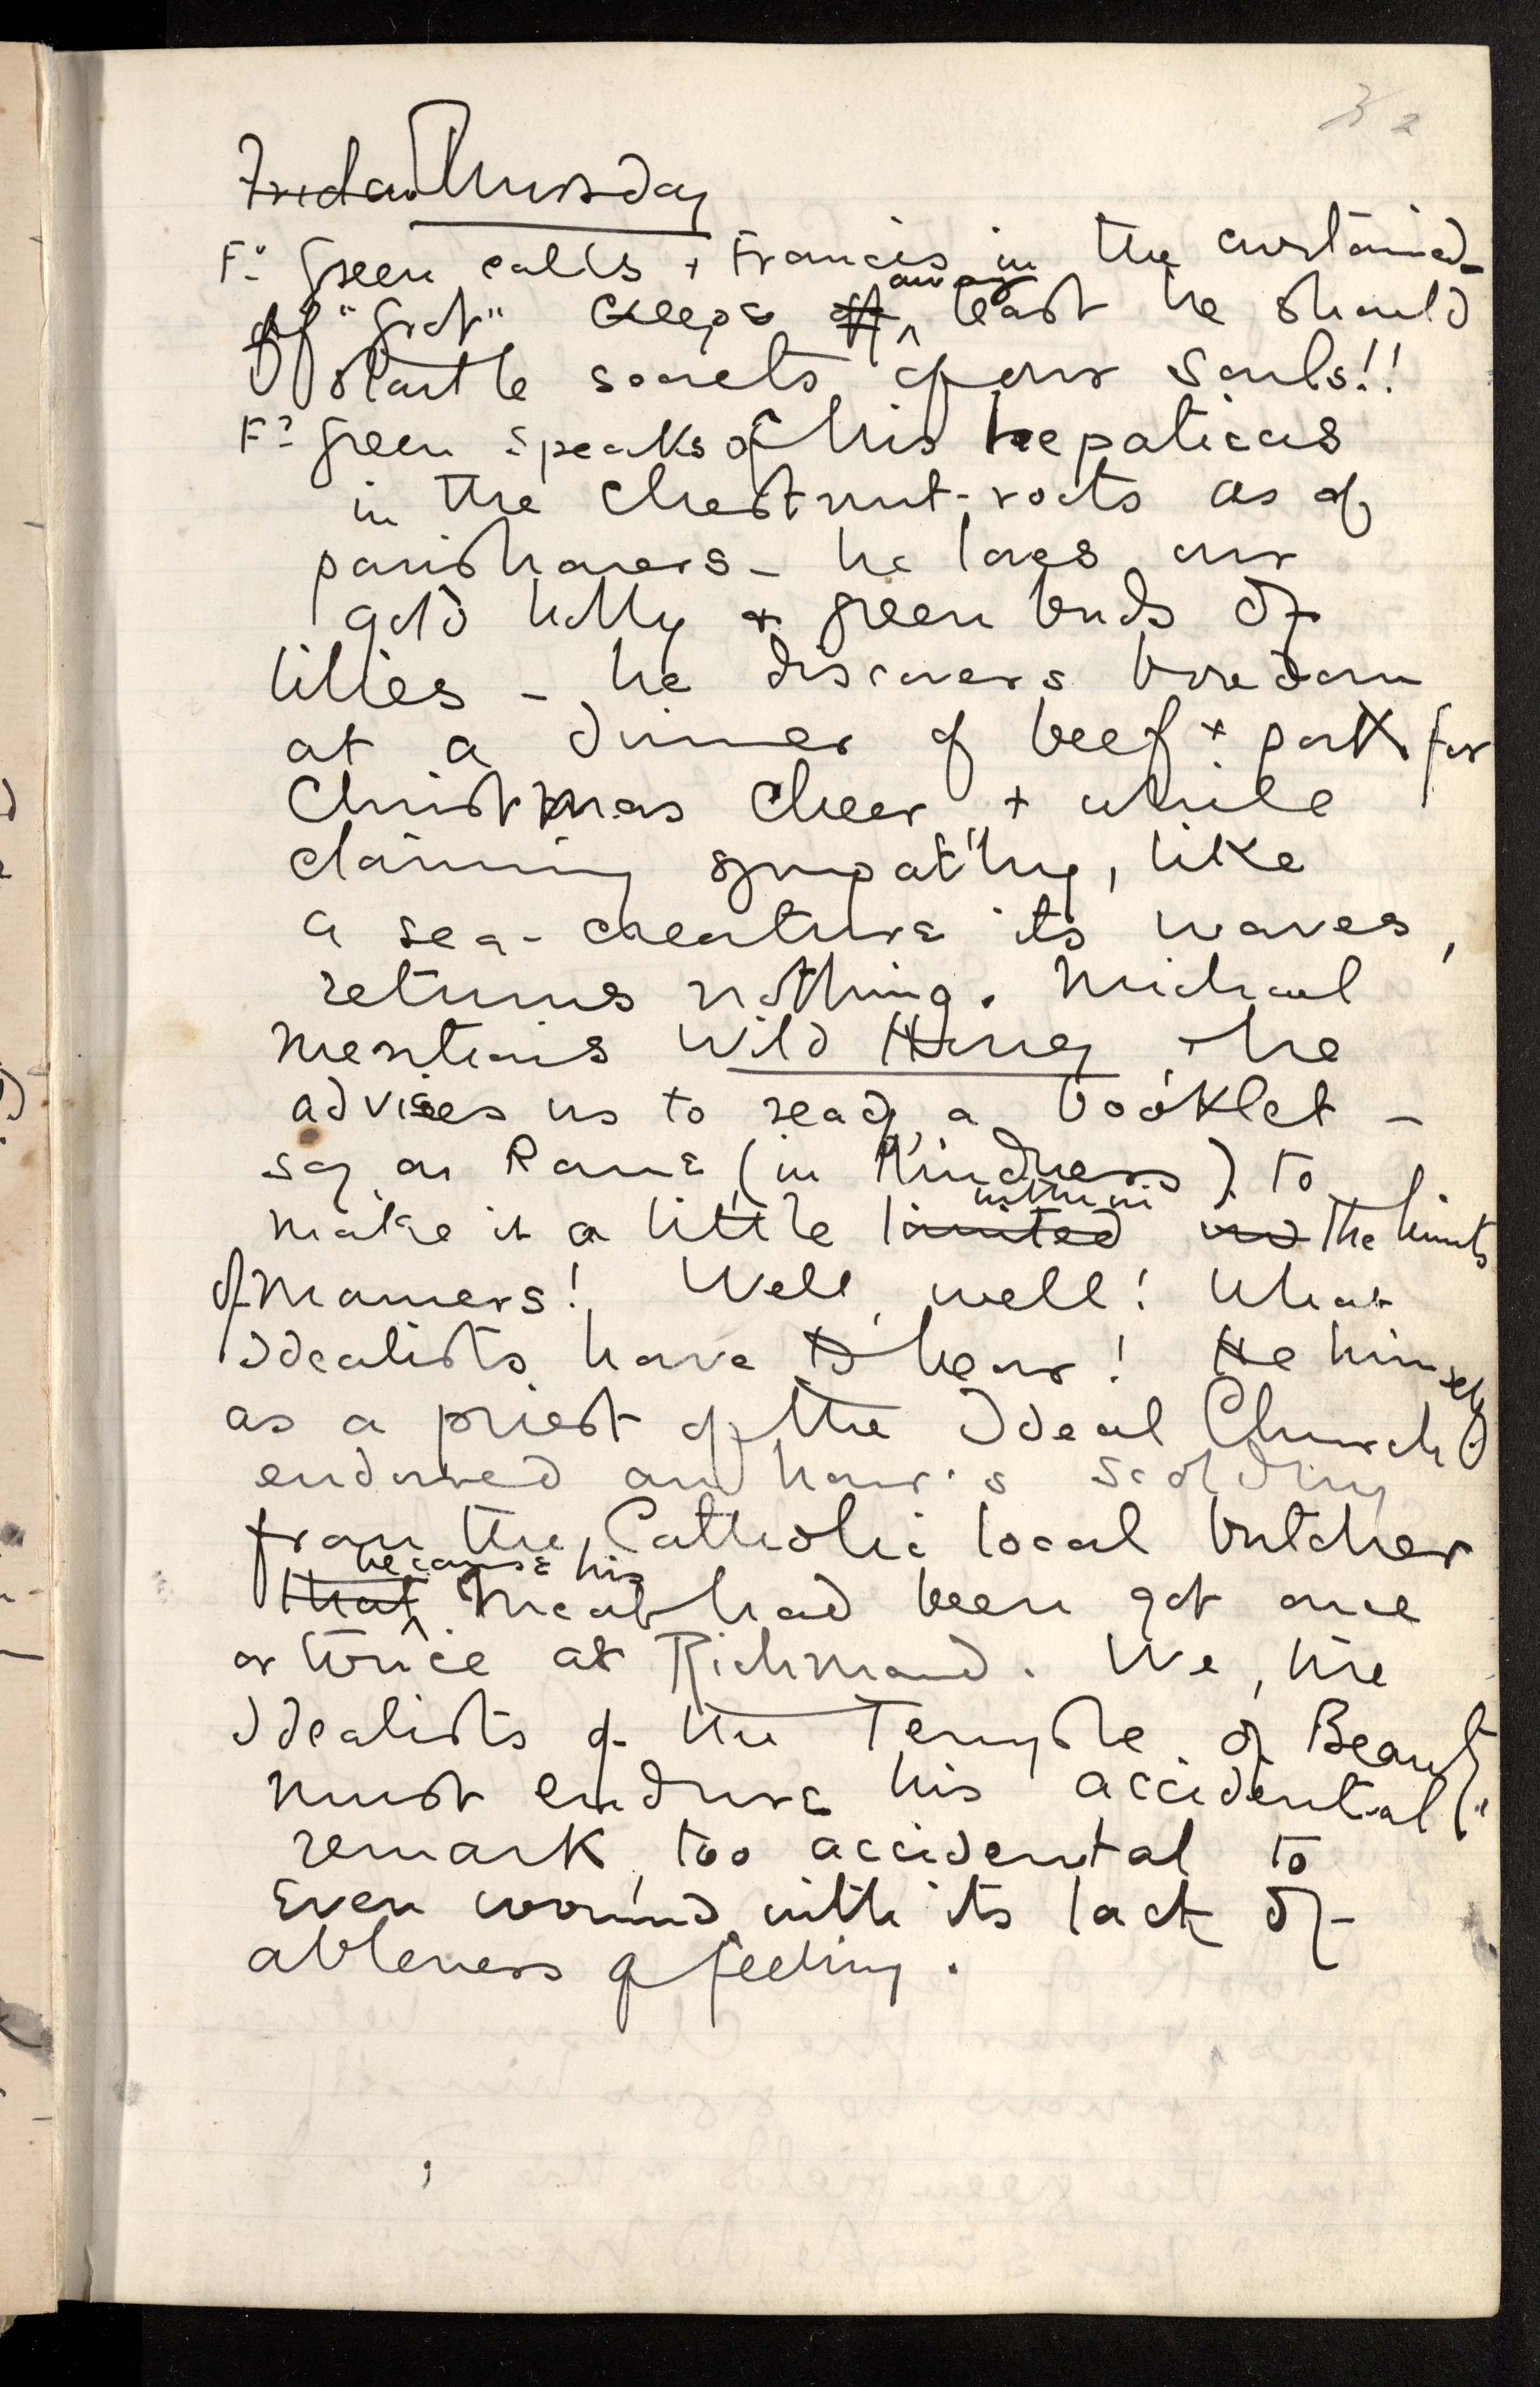 32
Friday Thursday
Fr Green calls + Francis in the curtained-
off "Grot" keeps off away least he should
startle secrets of our souls!!
Fr Green speaks of his hepaticas
in the chestnut-roots as of
parishoners - he loves our
gold holly & green buds of
lilies - he discovers boredom
at a dinner of beef + pork for
Christmas cheer + while
claiming sympathy, like
a sea-creature its waves,
returns nothing. Michael
mentions Wild Honey + he
advises us to read a booklet -
say on Rome (in kindness) to
make it a little limited within the limits
of Mamers! Well, well! What
Idealists have to hear! He himself
as a priest of the Ideal Church
endured an hour's scolding
from the Catholic local butcher
that because his meat had been got once
or twice at Richmond. We, the
Idealists of the Temple of Beauty
must endure his accidental
remark, too accidental to
even wound with its lack of
ableness of feeling.